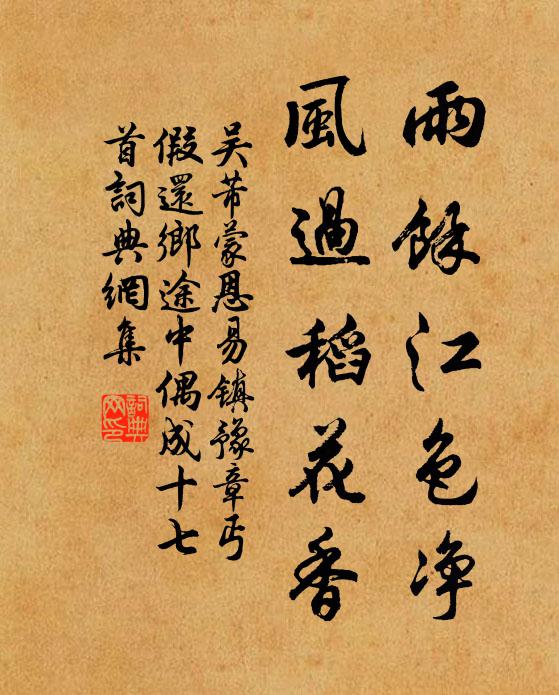 雨餘江色净
風過稻花香
吴芾蒙恩易镇豫章丐
假還鄉途中偶成十七
首詞典網集
詞典
网印